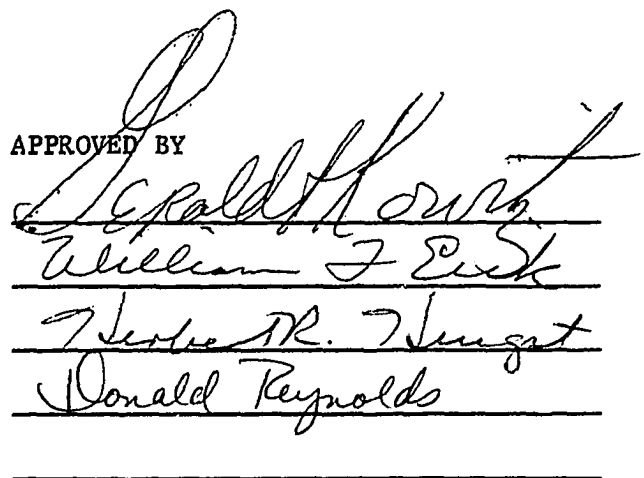 APPROVED BY
Gerald Kowitz
William F Eick
Herbert R. Hengst
Donald Reynolds